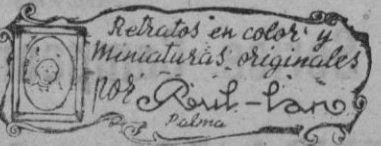 Retratos en color y
miniaturas originales
por Raul-lan
Palma